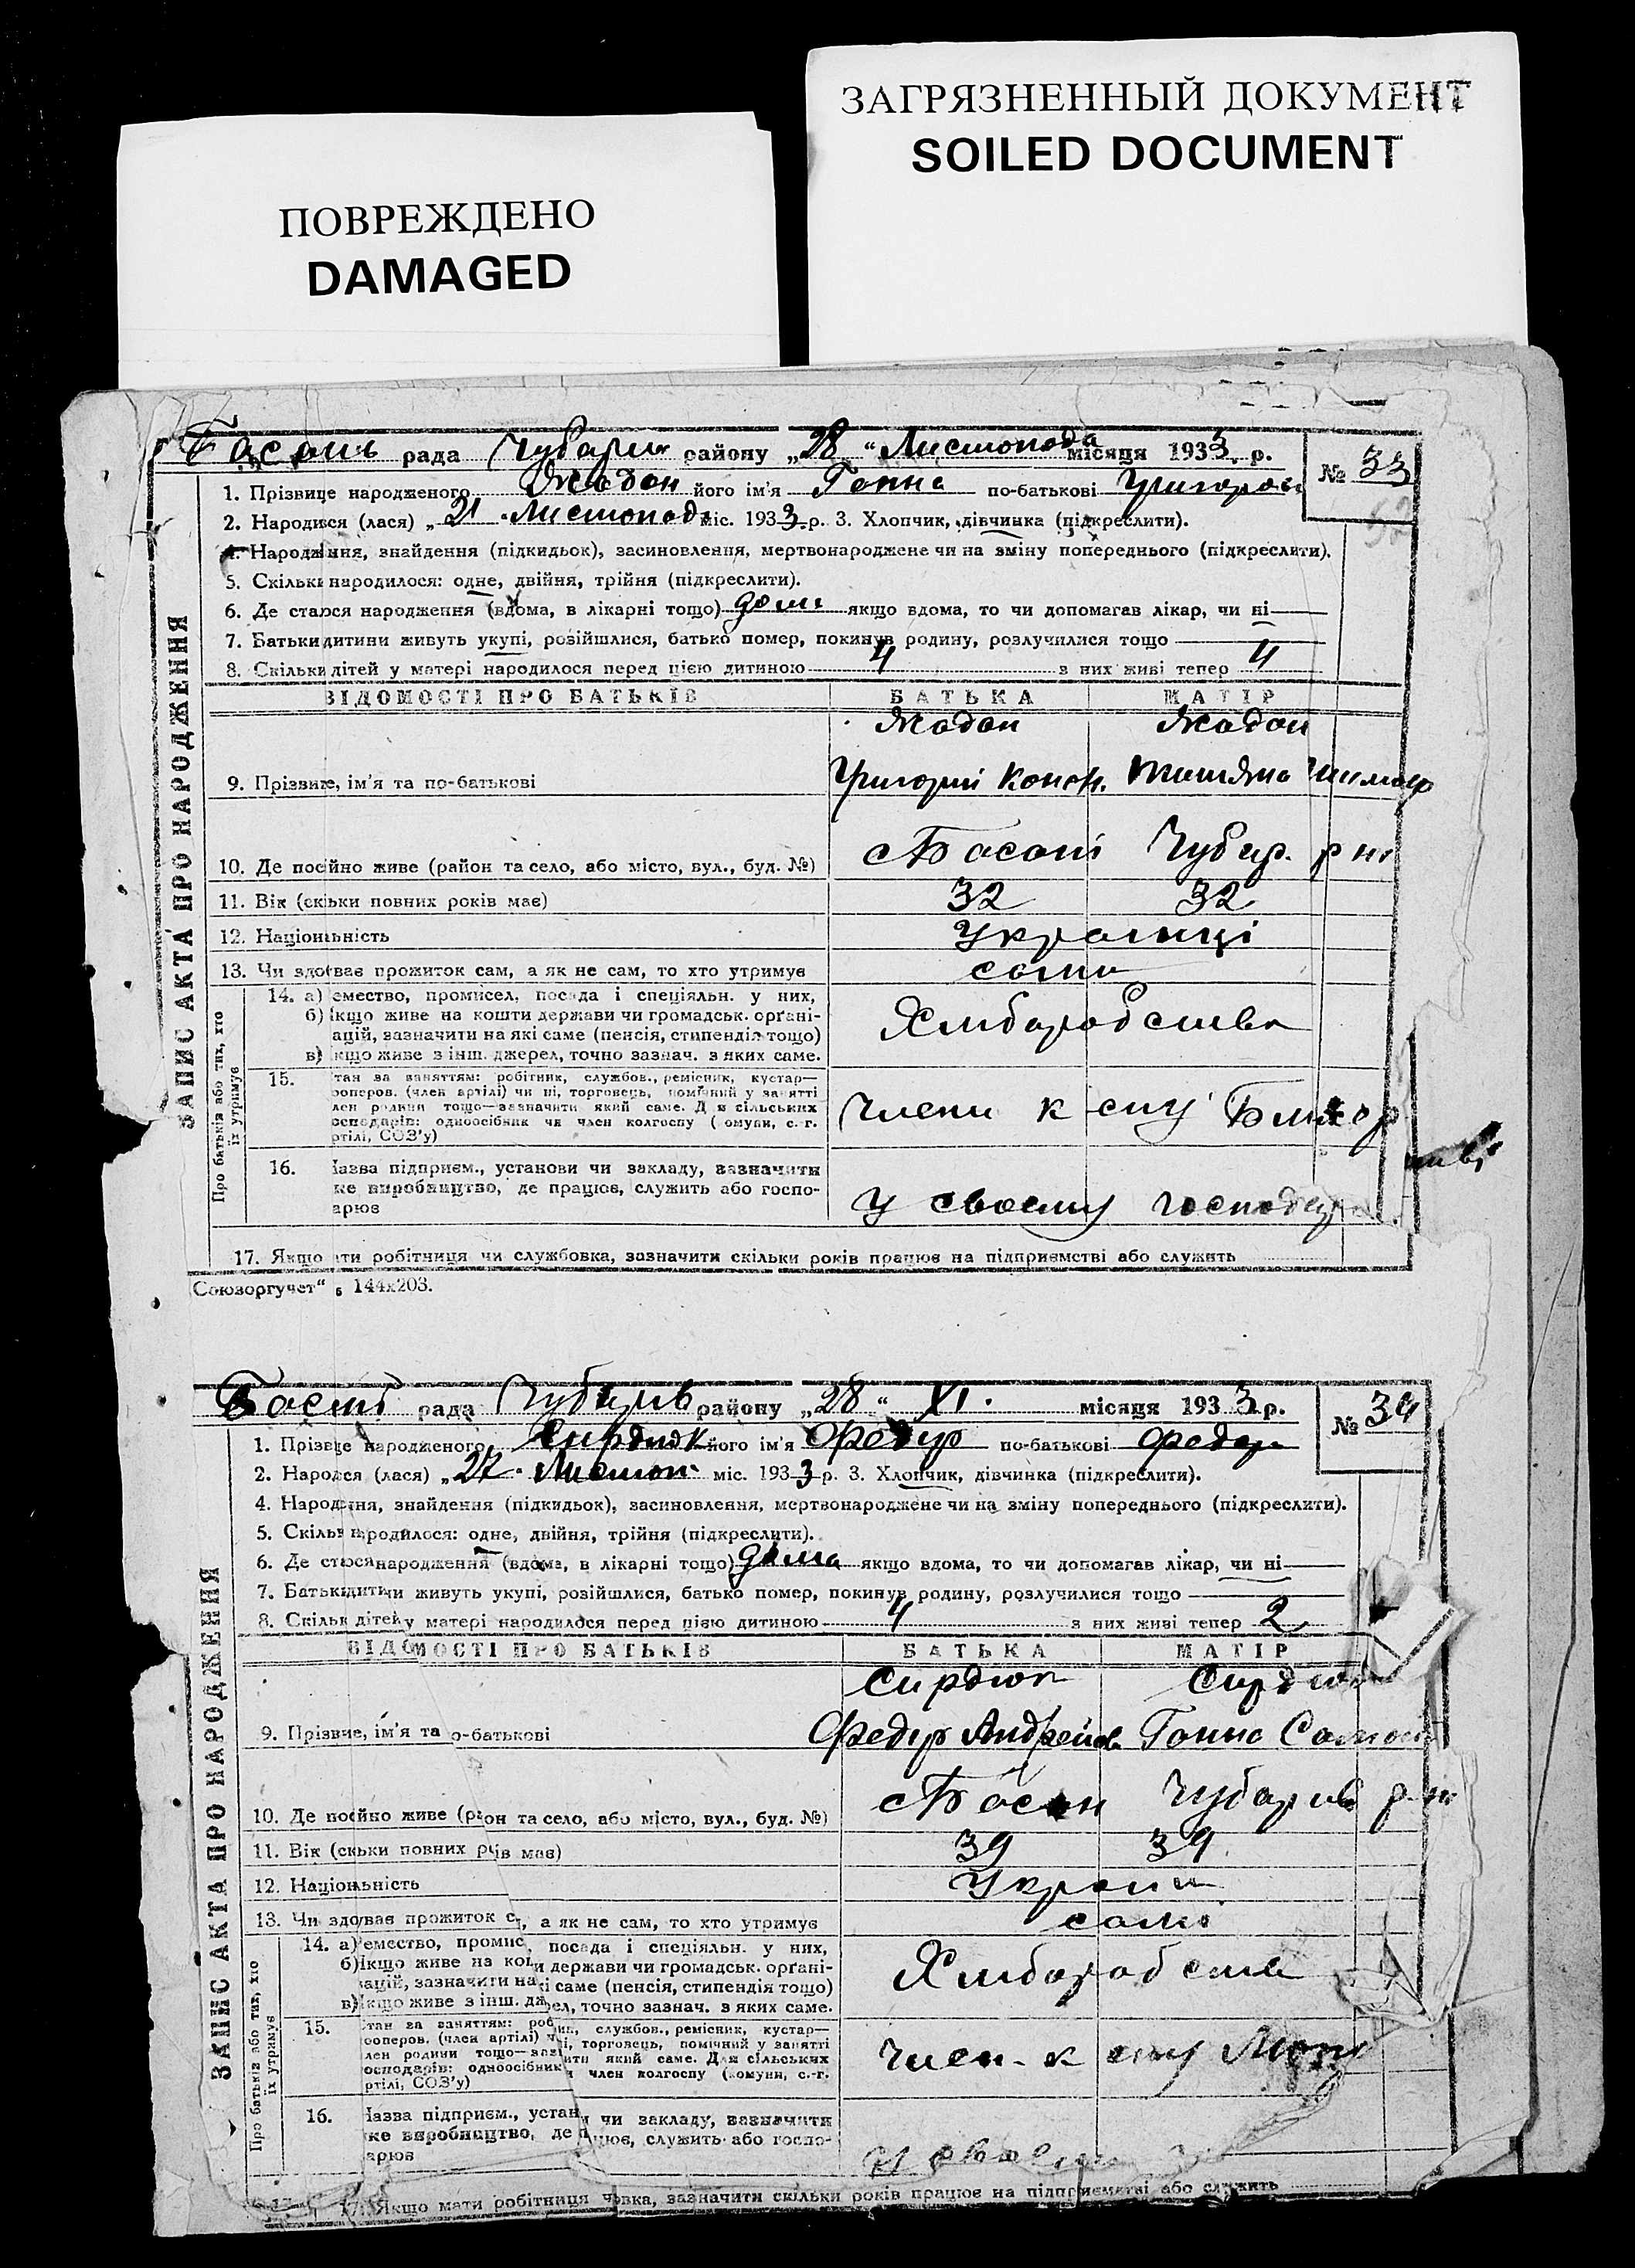 ЗАГРЯЗНЕННЫЙ ДОКУМЕНТ
SOILED DOCUMENT
ПОВРЕЖДЕНО
DAMAGED
рада Чубарів району „28“ Листопода місяця 1933 р. № 33
1. Прізвище народженого Жадан його ім'я Ганна по-батькові Григоров
2. Народився (лася) „21 Листопода міс. 1933 р. 3. Хлопчик, дівчинка (підкреслити).
4. Народження, знайдення (підкидьок), засиновлення, мертвонароджене чи на зміну попереднього (підкреслити).
5. Скільки народилося: одне, двійня, трійня (підкреслити).
6. Де стався народження (вдома, в лікарні тощо) дома якщо вдома, то чи допомагав лікар, чи ні
7. Батьки дитини живуть укупі, розійшлися, батько помер, покинув родину, розлучилися тощо
8. Скільки дітей у матері народилося перед цією дитиною 4 з них живі тепер 4
ВІДОМОСТІ ПРО БАТЬКІВ БАТЬКА МАТІР
Жадан Жадан
9. Прізвище, ім'я та по-батькові Григорій Конон.
10. Де постійно живе (район та село, або місто, вул., буд. №) Басані Чубар. р-н
11. Вік (скільки повних років має) 32 32
12. Національність Українці
13. Чи здобуває прожиток сам, а як не сам, то хто утримує сами
14. а) емество, промисел, посада і спеціяльн. у них,
б) якщо живе на кошти держави чи громадськ. орґані-
ацій, зазначити на які саме (пенсія, стипендія тощо)
в) якщо живе з інш. джерел, точно зазнач. з яких саме.
Хліборобства
15. тан за заняттям: робітник, службов., ремісник, кустар—
ооперов. (член артілі) чи ні, торговець, помічний у занятті
лен родини тощо—зазначити який саме. Для сільських
осподарів: одноосібник чи член колгоспу (комуни, с.-г.
ртілі, СОЗ'у)
Члени к спу
16. Назва підприєм., установи чи закладу, зазначити
яке виробництво, де працює, служить або госпо-
арює
У своєму господар
17. Якщо мати робітниця чи службовка, зазначити скільки років працює на підприємстві або служить
Союзоргучет“ 144х203.
ЗАПИС АКТА ПРО НАРОДЖЕННЯ
Про батьків або тих, хто
їх утримує
рада Чубарів району „28“ XI. місяця 1933 р. № 34
1. Прізвище народженого Сирдюк його ім'я Федір по-батькові Федор
2. Народився (лася) „27 Листоп. міс. 1933 р. 3. Хлопчик, дівчинка (підкреслити).
4. Народження, знайдення (підкидьок), засиновлення, мертвонароджене чи на зміну попереднього (підкреслити).
5. Скільки народилося: одне, двійня, трійня (підкреслити).
6. Де стався народження (вдома, в лікарні тощо) дома якщо вдома, то чи допомагав лікар, чи ні
7. Батьки дитини живуть укупі, розійшлися, батько помер, покинув родину, розлучилися тощо
8. Скільки дітей у матері народилося перед цією дитиною 4 з них живі тепер 2
ВІДОМОСТІ ПРО БАТЬКІВ БАТЬКА МАТІР
Сирдюк Сирдюк
9. Прізвище, ім'я та по-батькові Федір Андреїов Ганна
10. Де постійно живе (район та село, або місто, вул., буд. №) Басан Чубарів р-н
11. Вік (скільки повних років має) 39 39
12. Національність Україн
13. Чи здобуває прожиток с, а як не сам, то хто утримує самі
14. а) емество, промис, посада і спеціяльн. у них,
б) якщо живе на кошти держави чи громадськ. орґані-
ацій, зазначити на які саме (пенсія, стипендія тощо)
в) якщо живе з інш. джерел, точно зазнач. з яких саме.
Хліборобств
15. тан за заняттям: робітник, службов., ремісник, кустар—
ооперов. (член артілі) чи ні, торговець, помічний у занятті
лен родини тощо—зазначити який саме. Для сільських
осподарів: одноосібник чи член колгоспу (комуни, с.-г.
ртілі, СОЗ'у)
Член. к спу
16. Назва підприєм., установи чи закладу, зазначити
яке виробництво, де працює, служить або госпо-
арює
17. Якщо мати робітниця чи службовка, зазначити скільки років працює на підприємстві або служить
ЗАПИС АКТА ПРО НАРОДЖЕННЯ
Про батьків або тих, хто
їх утримує